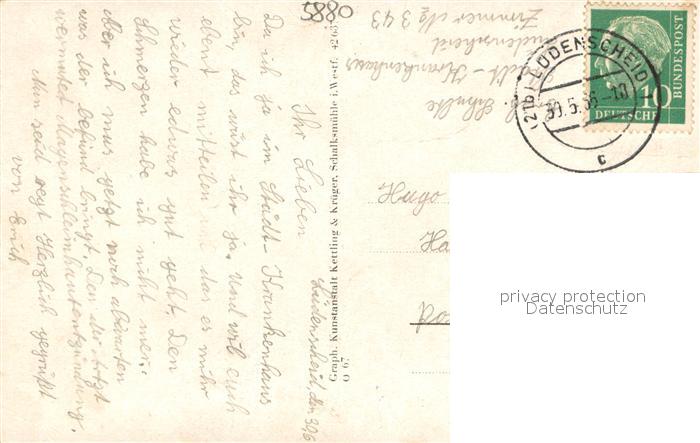 5880
Schulte
Städt-Krankenhaus
Lüdenscheid
Zimmer No 343
(21b) LÜDENSCHEID
30.5.56.-18
c
DEUTSCHE
BUNDESPOST
10
Lüdenscheid, den 30,6
Ihr Lieben
Da ich ja im Städt-Krankenhaus
bin, das wüst ihr ja. Und will euch
ebent mitteilen das es mihr
wieder etwas gut geht. Den
Schmerzen habe ich nicht mer.
Aber ich mus jetzt noch abwarten
was der befund bringt. Den der Artzt
vermutet Magenschleimhautentzündung.
Nun seid regt Herzlich gegrüßt
von Erich
Graph. Kunstanstalt Kettling & Krüger, Schalksmühle i. Westf. 4263
O 67
Hugo
Ha
privacy protection
Datenschutz